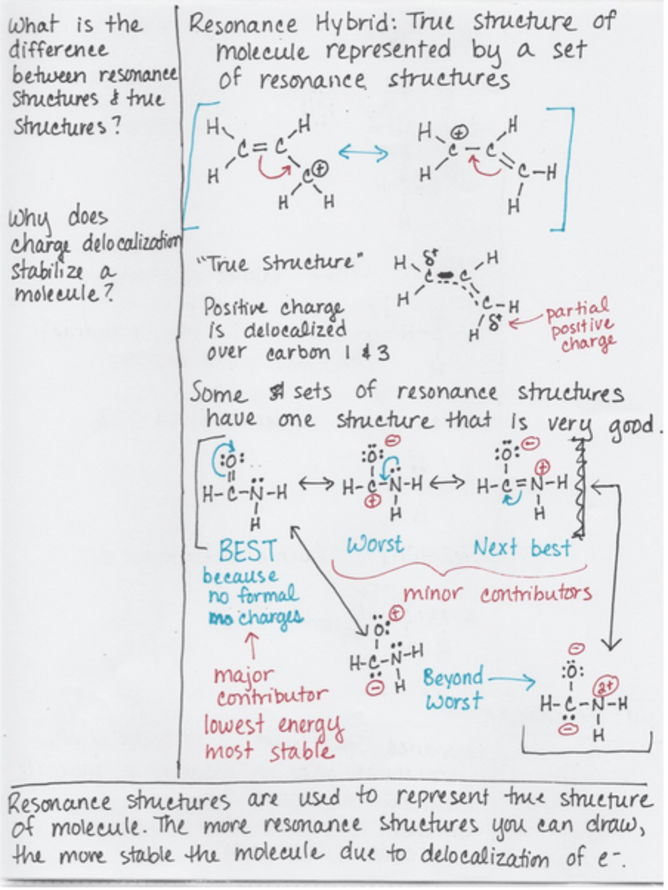 What is the
difference
between resonance
structures & true
structures?
Why does
charge delocalization
stabilize a
molecule?
Resonance Hybrid: True structure of
molecule represented by a set
of resonance structures
H H H ⊕ H
C=C C-C
H C⊕ H C-H
H H H
"True Structure"
Positive charge
is delocalized
over carbon 1 & 3
H δ+ H
C C
H C-H
H δ+
partial
positive
charge
Some sets of resonance structures
have one structure that is very good.
:O: :O: ⊖ :O: ⊖
H-C-N-H H-C-N-H H-C=N-H
⊕ ⊕
H H H
BEST
because
no formal
charges
Worst
Next best
minor contributors
major
contributor
lowest energy
most stable
:O: ⊕
H-C-N-H
⊖ H
Beyond
worst
⊖
:O:
H-C-N-H
2+
⊖ H
Resonance structures are used to represent true structure
of molecule. The more resonance structures you can draw,
the more stable the molecule due to delocalization of e-.